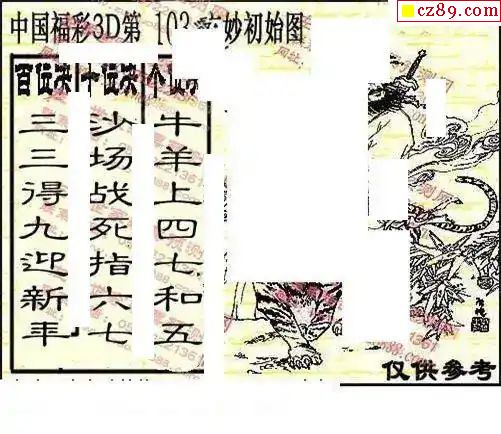 cz89.com
中国福彩3D第 103 妙初始图
百位决 十位决 个位
三三得九迎新年
沙场战死指六七
牛羊上四七和五
仅供参考